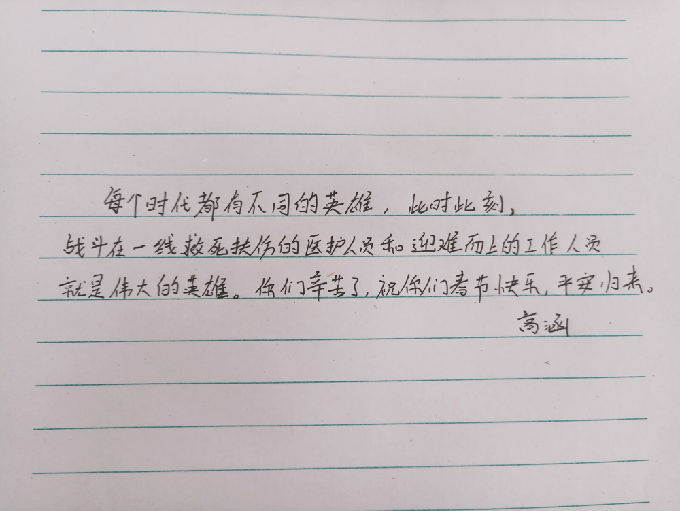 每个时代都有不同的英雄，此时此刻，
战斗在一线救死扶伤的医护人员和迎难而上的工作人员
就是伟大的英雄。你们辛苦了，祝你们春节快乐，平安归来。
高涵